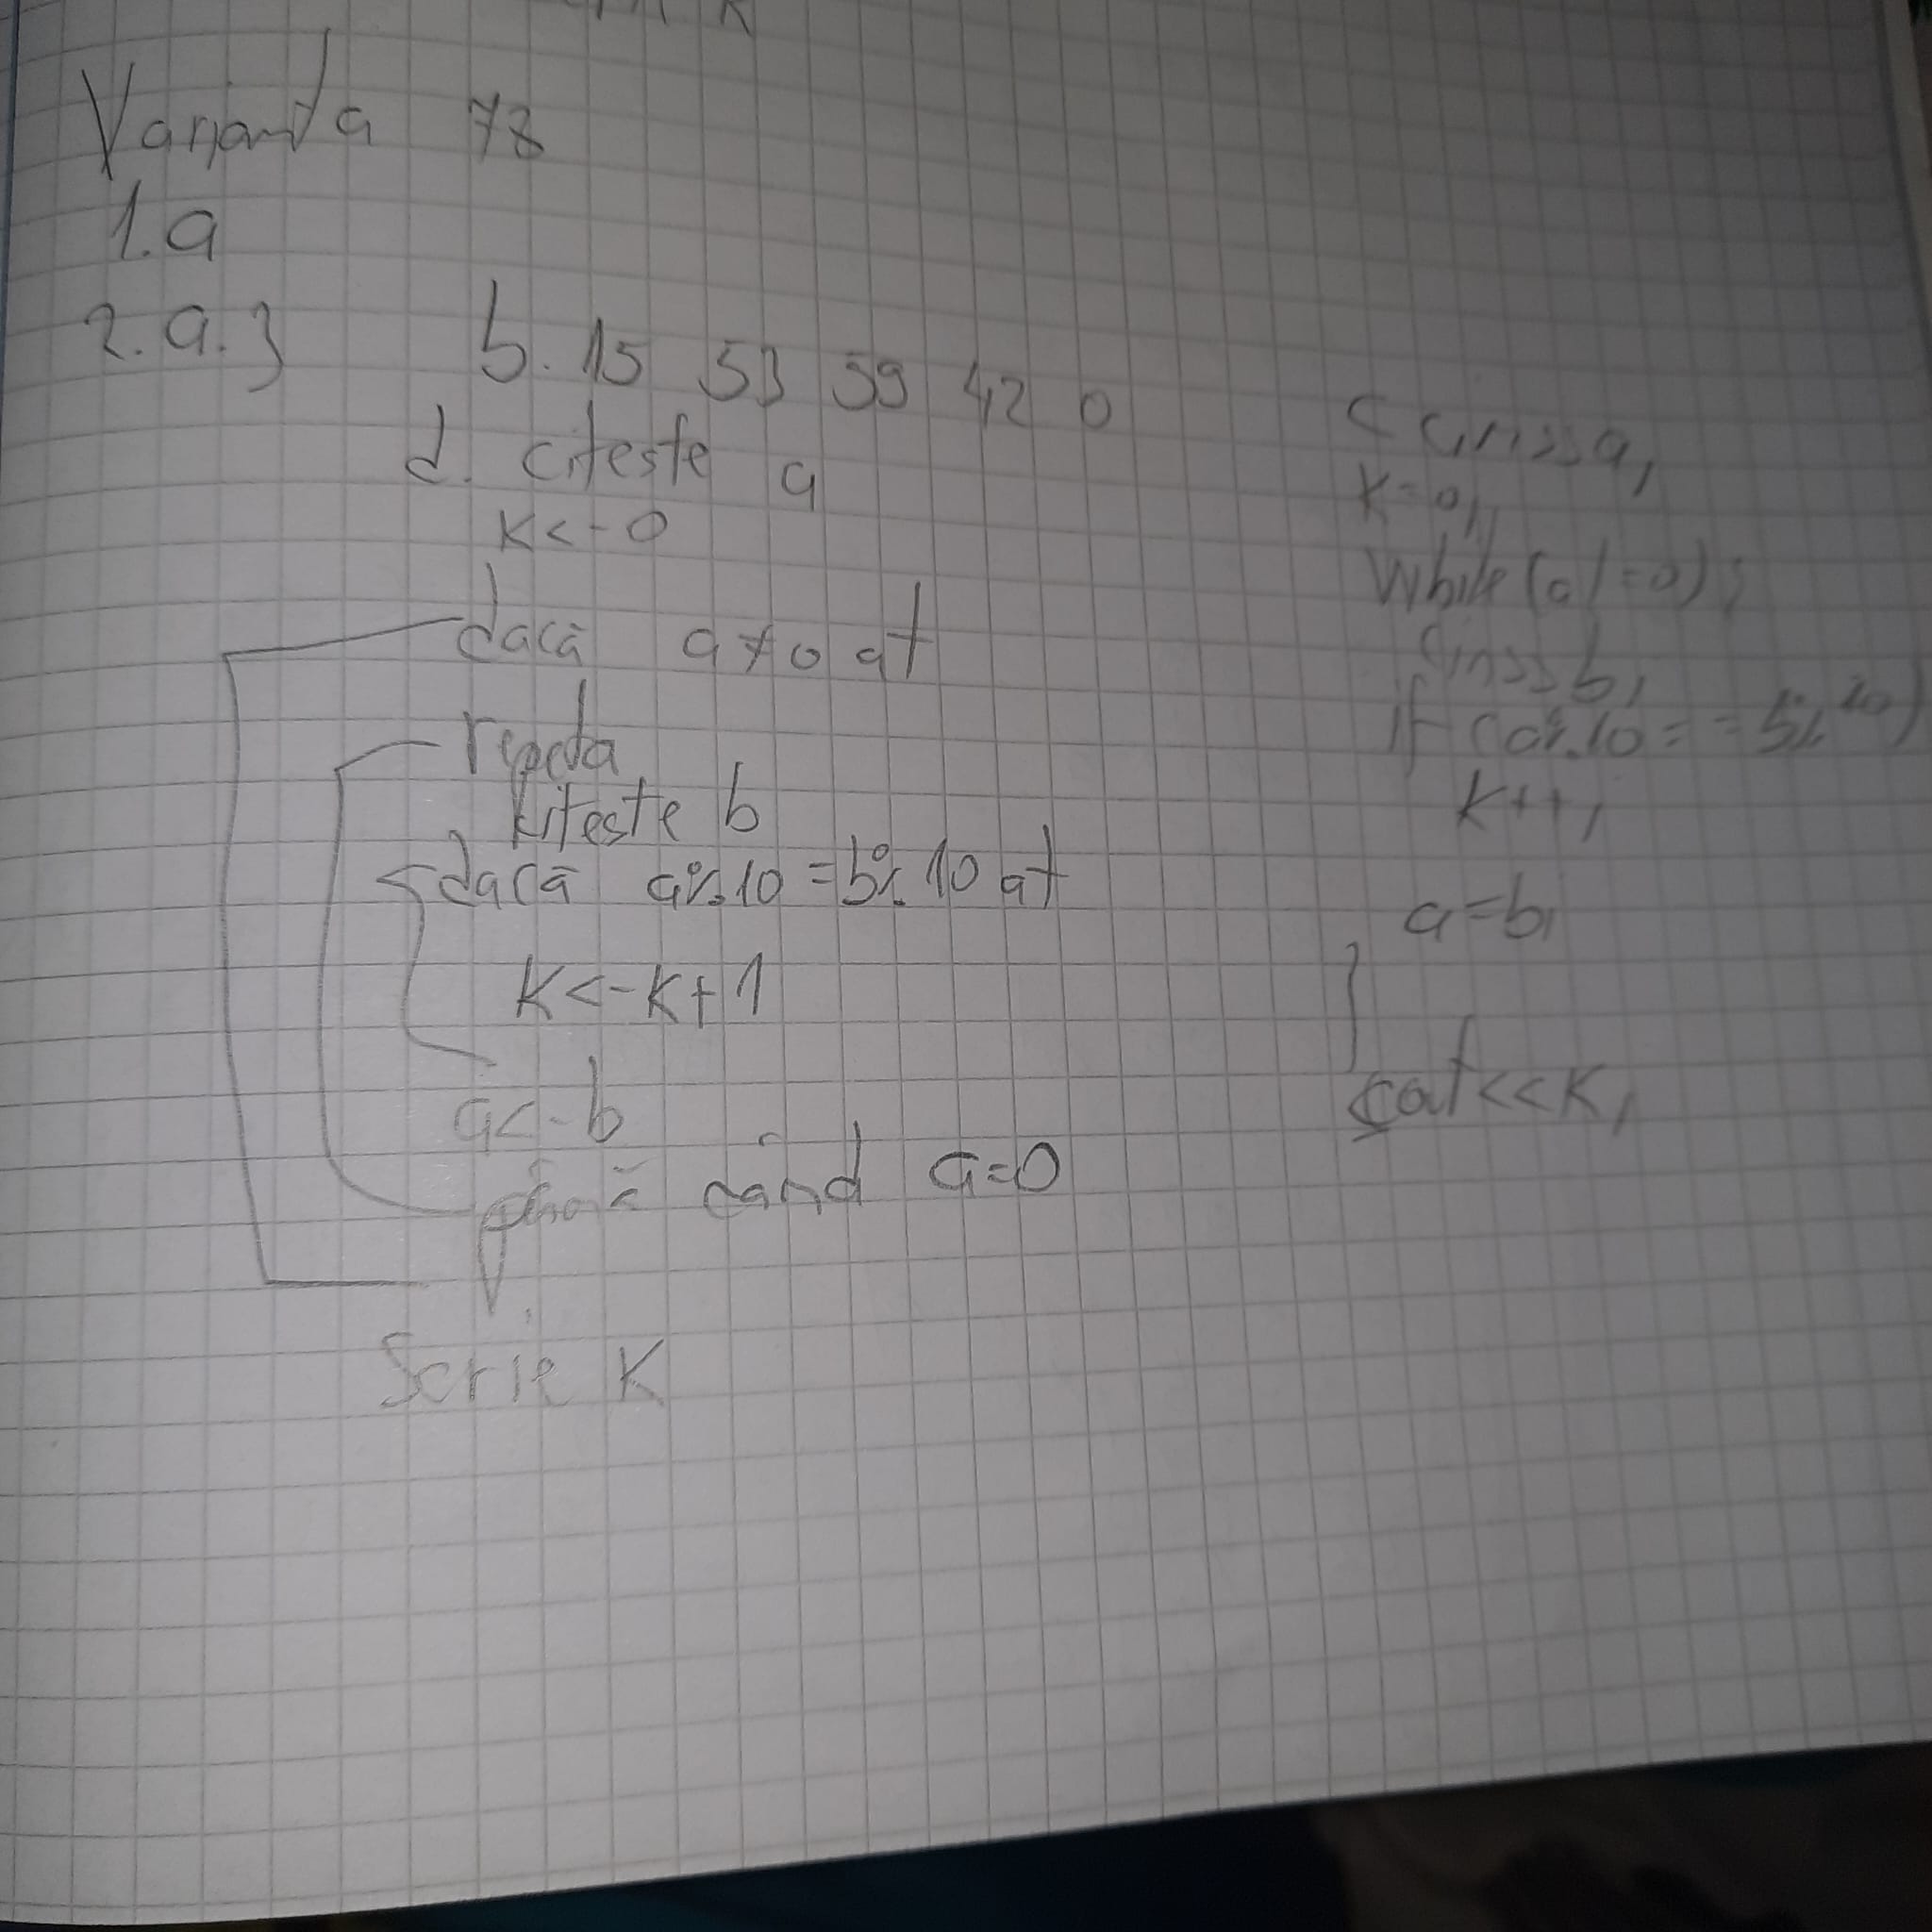 Varianta 78
1. a
2. a. 3
b. 15 53 59 42 0
d. citeste a
K<-0
dacă a≠0 at
repeta
citeste b
dacă a%10=b%10 at
K<-K+1
a<-b
până când a=0
Scrie K
c cin>>a;
K=0;
While(a!=0);
cin>>b;
if (a%10==b%10)
K++;
a=b;
}
cout<<K;